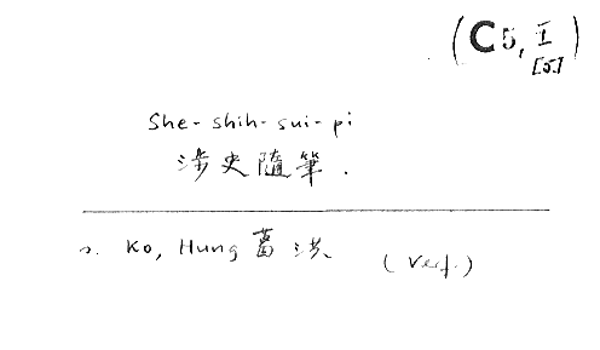 (C5, I)
[5.]
She-shih-sui-pi
涉史隨筆.
s. Ko, Hung 葛洪 (Verf.)